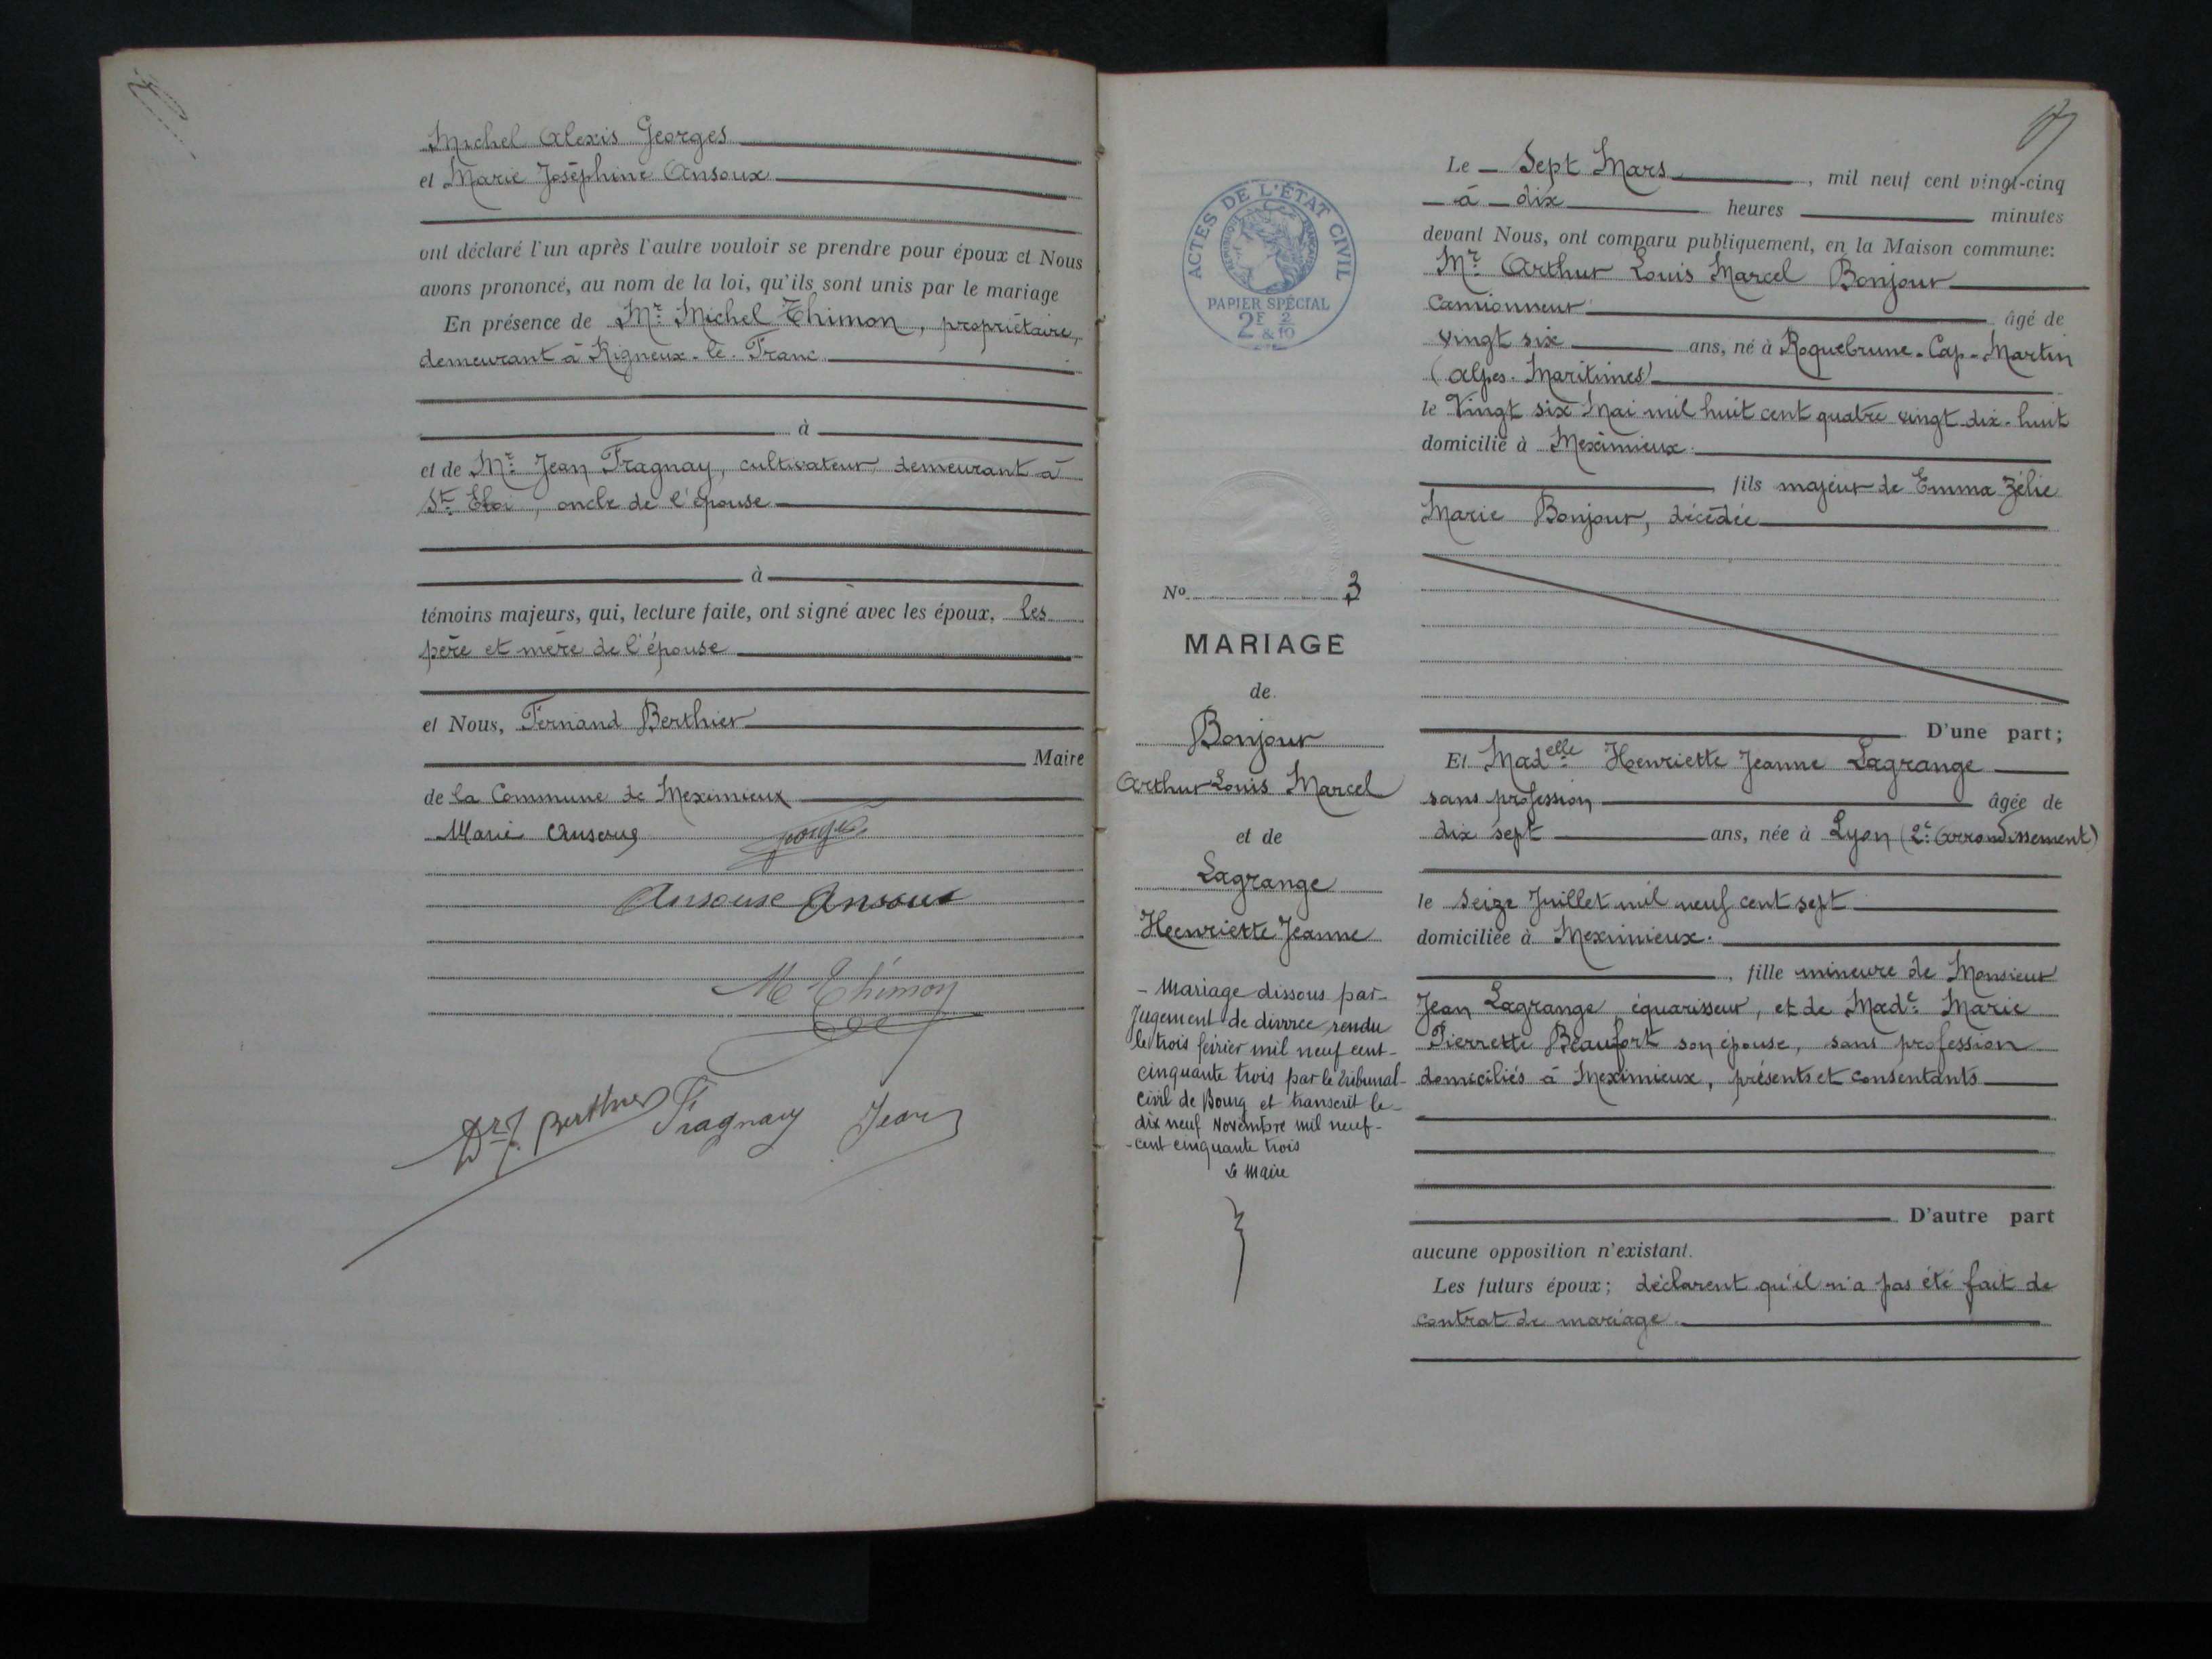 Michel Alexis Georges
et Marie Joséphine Ansoux
ont déclaré l'un après l'autre vouloir se prendre pour époux et Nous
avons prononcé, au nom de la loi, qu'ils sont unis par le mariage
En présence de Mr. Michel Thimon, propriétaire,
demeurant à Rigneux-le-Franc
à
et de Mr. Jean Fragnay, cultivateur, demeurant à
St. Eloi, oncle de l'épouse
à
témoins majeurs, qui, lecture faite, ont signé avec les époux, les
père et mère de l'épouse
et Nous, Fernand Berthier
Maire
de la Commune de Meximieux
Marie Ansoux Georges
Ansouse Ansoux
M Thimon
Dr. F. Berthier Fragnay Jean
ACTES DE L'ÉTAT CIVIL
RÉPUBLIQUE FRANÇAISE
PAPIER SPÉCIAL
2F 2/10
&
No 3
MARIAGE
de
Bonjour
Arthur Louis Marcel
et de
Lagrange
Henriette Jeanne
- Mariage dissous par-
Jugement de divorce rendu
le trois février mil neuf cent-
cinquante trois par le tribunal-
civil de Bourg et transcrit le-
dix neuf Novembre mil neuf-
-cent cinquante trois
Le Maire
Le Sept Mars, mil neuf cent vingt-cinq
à dix heures minutes
devant Nous, ont comparu publiquement, en la Maison commune:
Mr. Arthur Louis Marcel Bonjour
Camionneur âgé de
vingt six ans, né à Roquebrune-Cap-Martin
(Alpes-Maritimes)
le Vingt six Mai mil huit cent quatre vingt dix-huit
domicilié à Meximieux.
, fils majeur de Emma Zélie
Marie Bonjour, décédée
D'une part;
Et Madelle Henriette Jeanne Lagrange
sans profession âgée de
dix sept ans, née à Lyon (2e Arrondissement)
le Seize Juillet mil neuf cent sept
domiciliée à Meximieux.
, fille mineure de Monsieur
Jean Lagrange, équarisseur, et de Made. Marie
Pierrette Beaufort son épouse, sans profession
domiciliés à Meximieux, présents et consentants
D'autre part
aucune opposition n'existant.
Les futurs époux; déclarent qu'il n'a pas été fait de
contrat de mariage.